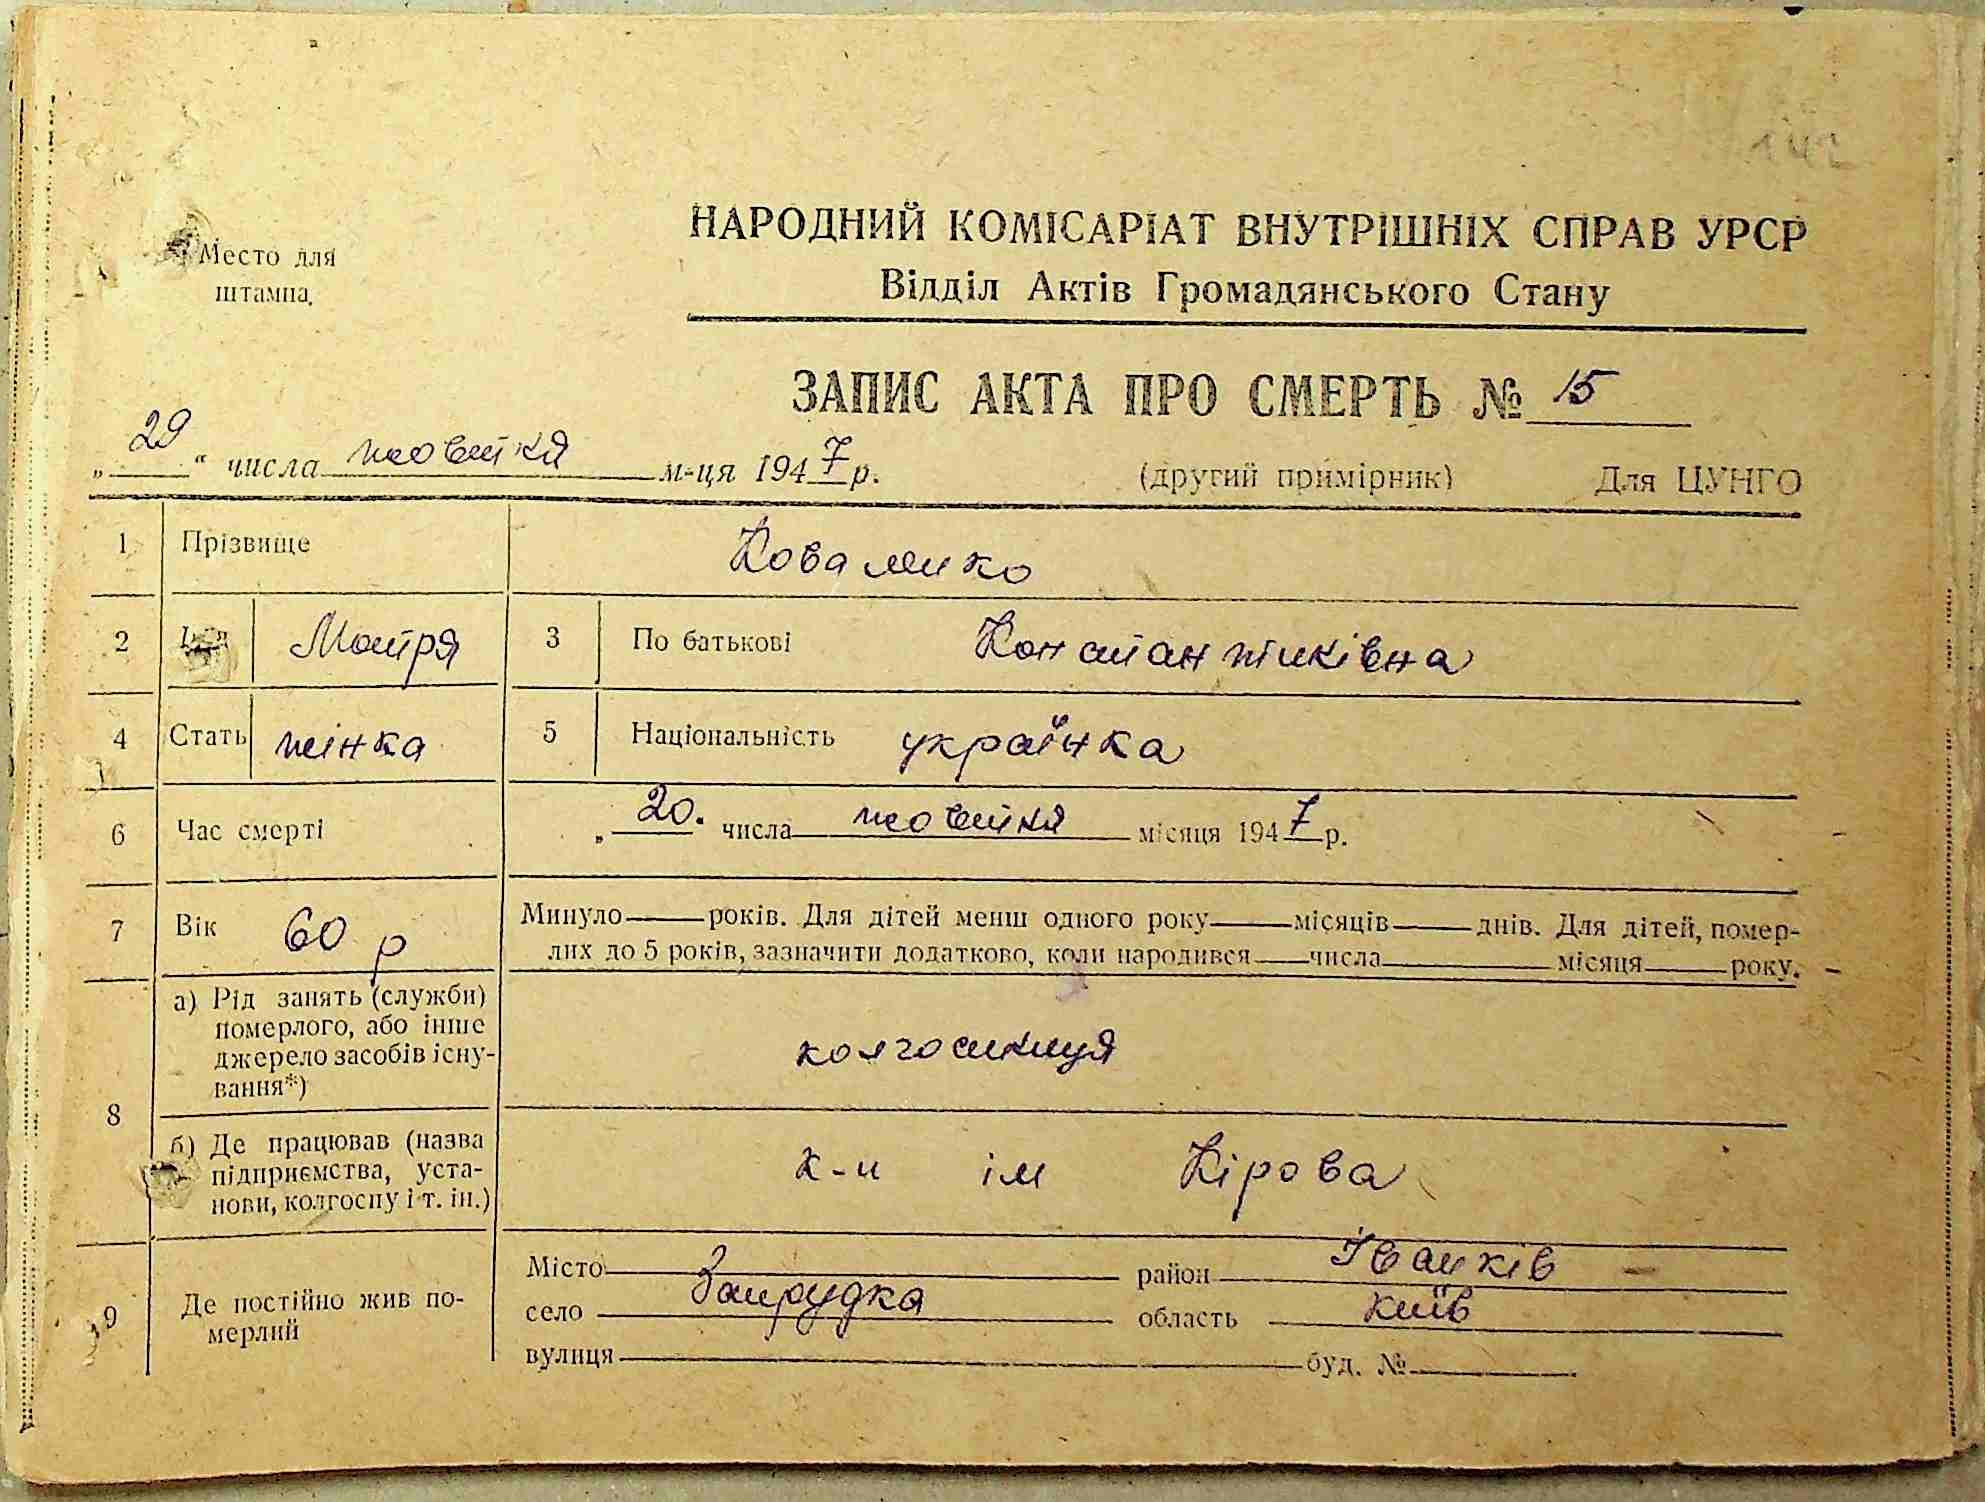 142
Место для
штампа.
НАРОДНИЙ КОМІСАРІАТ ВНУТРІШНІХ СПРАВ УРСР
Відділ Актів Громадянського Стану
ЗАПИС АКТА ПРО СМЕРТЬ № 15
„29“ числа жовтня м-ця 1947 р. (другий примірник) Для ЦУНГО
1 Прізвище Коваленко
2 Ім'я Мотря 3 По батькові Константинівна
4 Стать жінка 5 Національність українка
6 Час смерті „20. числа жовтня місяця 1947 р.
7 Вік 60 р Минуло років. Для дітей менш одного року місяців днів. Для дітей, помер-
лих до 5 років, зазначити додатково, коли народився числа місяця року.
8 а) Рід занять (служби)
померлого, або інше
джерело засобів існу-
вання*)
колгоспниця
б) Де працював (назва
підприємства, уста-
нови, колгоспу і т. ін.)
к-п ім Кірова
9 Де постійно жив по-
мерлий
Місто район Іванків
село Запрудка область Київ
вулиця буд. №